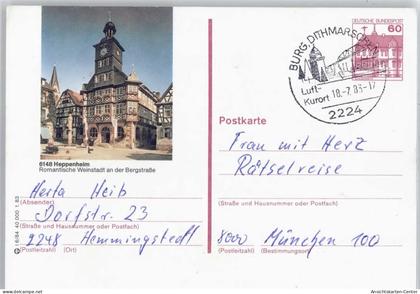 BURG, DITHMARSCHEN
Luft-
Kurort 18.-7.83-17
2224
DEUTSCHE BUNDESPOST
60
6148 Heppenheim
Romantische Weinstadt an der Bergstraße
Postkarte
Frau mit Herz
Rätselreise
Herta Heib
(Absender)
(Straße und Hausnummer oder Postfach)
Dorfstr. 23
(Straße und Hausnummer oder Postfach)
2248 Hemmingstedt
(Postleitzahl) (Ort)
8000 München 100
(Postleitzahl) (Bestimmungsort)
Ansichtskarten-Center